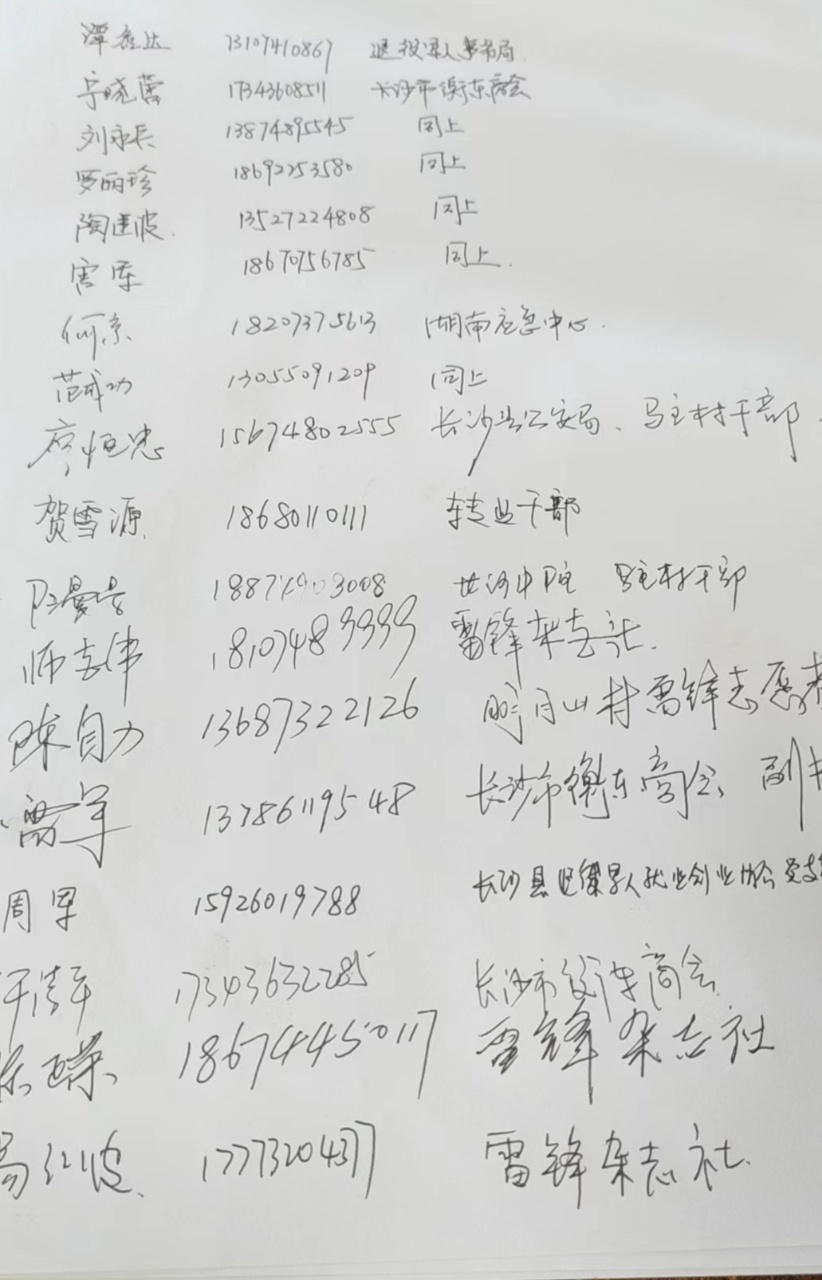 谭 达 73107410867 退役军人事务局
宁晓蕾 17343608511 长沙市衡东商会
刘永长 13874895545 同上
罗丽珍 18692253580 同上
陶建波 13527224808 同上
18670756785 同上
何京 18207375613 湖南应急中心
范成功 13055091209 同上
廖恒忠 15674802555 长沙县公安局、马主村干部
贺雪源 18680110111 转业干部
18874903008 驻村干部
师志伟 18107489999 雷锋杂志社
陈自力 13687322126 明月山村雷锋志愿者
雷军 13786119548 长沙市衡东商会 副
周军 15926019788 长沙县退役军人就业创业协会
清平 17343632285 长沙市衡东商会
18674450117 雷锋杂志社
易红波 17773204377 雷锋杂志社